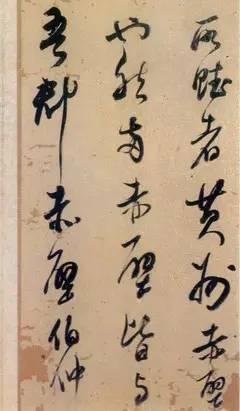 所賦者黃州赤壁
也然兩赤壁皆与
吾郡赤壁伯仲